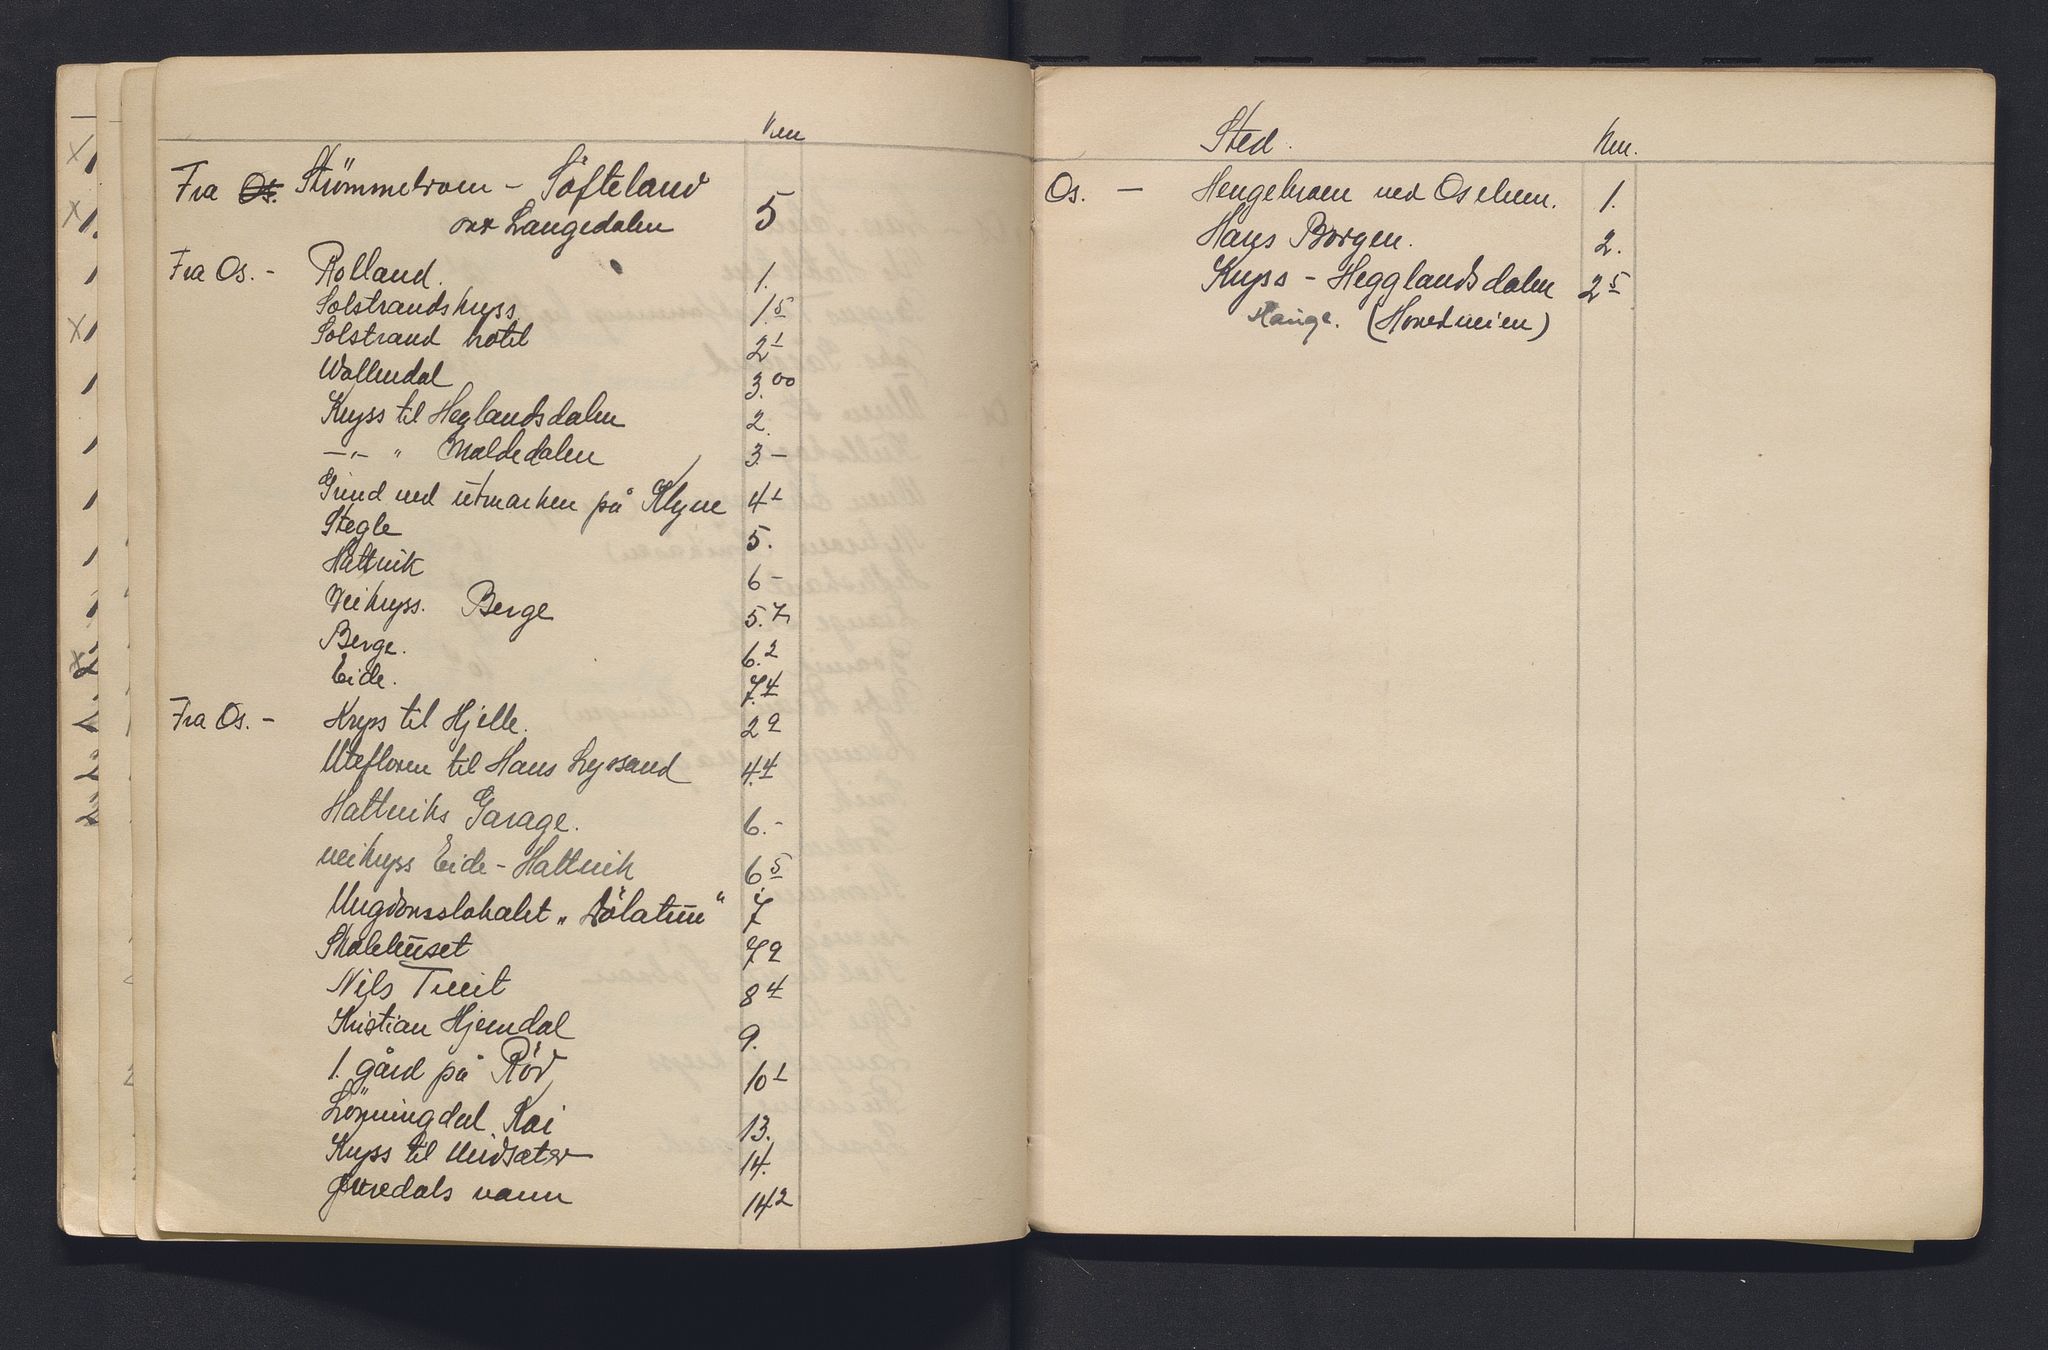 Km
Fra Os. Strömmebroen - Söfteland
over Langedalen 5
Fra Os. - Rolland. 1.
Solstrandskryss. 1.5
Solstrand hotel 2 1
Wallendal 3.00
Kryss til Heglandsdalen 2.
-"- " Maldedalen 3 -
Grind ved utmarken på Klyve 4 1
Stegle 5.
Hattvik 6 -
Veikryss. Berge 5.7
Berge. 6.2
Eide. 7.4
Fra Os. - Kryss til Hjelle. 2 9
Utefloren til Hans Lyssand 4.4
Hattviks Garage. 6. -
veikryss Eide - Hattvik 6 5
Ungdomslokalet „Sölatun" 7
Skolehuset 7 9
Nils Tveit 8 4
Kristian Hjemdal 9.
1. gård på Röd 10 1
Lönningdal Kai 13.
Kryss til Midsæter 14.
Gåsedals vann 14 2
Sted. Km.
Os. - Hengebroen ved Oselven. 1.
Hans Borgen. 2.
Kryss - Hegglandsdalen 2 5
Hauge. (Hovedveien)